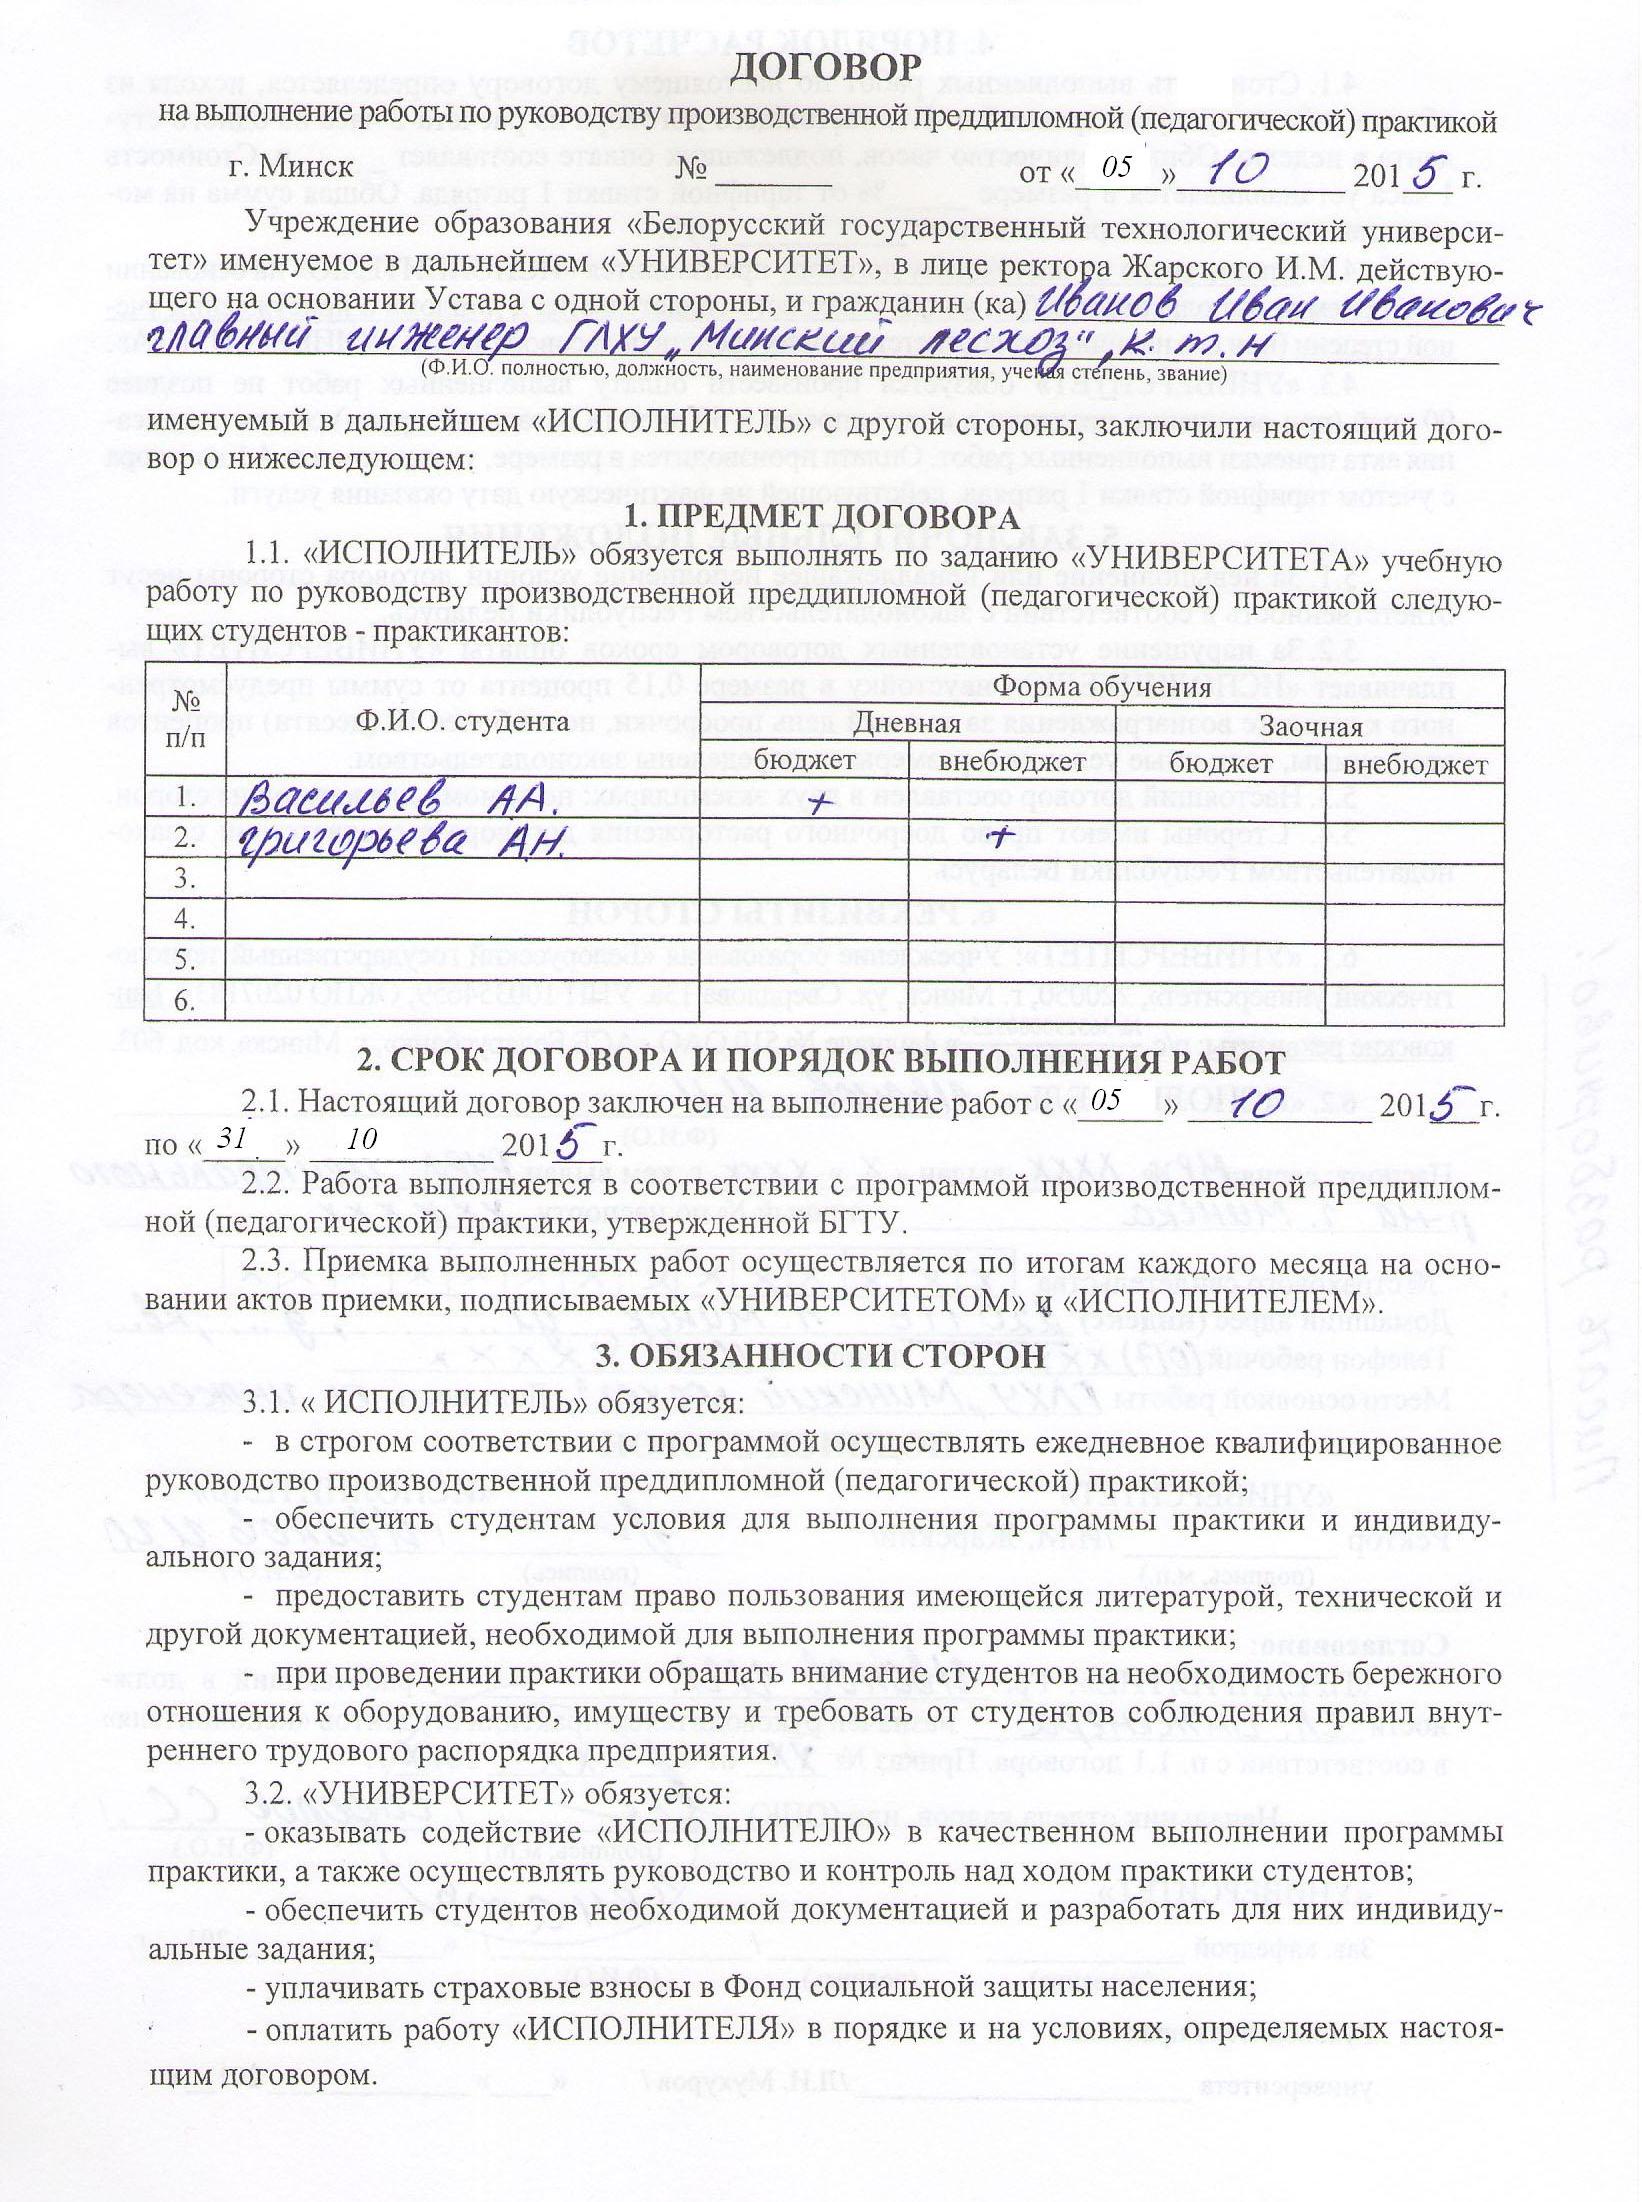 ДОГОВОР
на выполнение работы по руководству производственной преддипломной (педагогической) практикой
г. Минск № ________ от «05» 10 2015 г.
Учреждение образования «Белорусский государственный технологический универси-
тет» именуемое в дальнейшем «УНИВЕРСИТЕТ», в лице ректора Жарского И.М. действую-
щего на основании Устава с одной стороны, и гражданин (ка) Иванов Иван Иванович
главный инженер ГЛХУ „Минский лесхоз", к.т.н
(Ф.И.О. полностью, должность, наименование предприятия, ученая степень, звание)
именуемый в дальнейшем «ИСПОЛНИТЕЛЬ» с другой стороны, заключили настоящий дого-
вор о нижеследующем:
1. ПРЕДМЕТ ДОГОВОРА
1.1. «ИСПОЛНИТЕЛЬ» обязуется выполнять по заданию «УНИВЕРСИТЕТА» учебную
работу по руководству производственной преддипломной (педагогической) практикой следую-
щих студентов - практикантов:
№ п/п Ф.И.О. студента Форма обучения
Дневная Заочная
бюджет внебюджет бюджет внебюджет
1. Васильев А.А. +
2. Григорьева А.Н. +
3.
4.
5.
6.
2. СРОК ДОГОВОРА И ПОРЯДОК ВЫПОЛНЕНИЯ РАБОТ
2.1. Настоящий договор заключен на выполнение работ с «05» 10 2015 г.
по «31» 10 2015 г.
2.2. Работа выполняется в соответствии с программой производственной преддиплом-
ной (педагогической) практики, утвержденной БГТУ.
2.3. Приемка выполненных работ осуществляется по итогам каждого месяца на осно-
вании актов приемки, подписываемых «УНИВЕРСИТЕТОМ» и «ИСПОЛНИТЕЛЕМ».
3. ОБЯЗАННОСТИ СТОРОН
3.1. « ИСПОЛНИТЕЛЬ» обязуется:
- в строгом соответствии с программой осуществлять ежедневное квалифицированное
руководство производственной преддипломной (педагогической) практикой;
- обеспечить студентам условия для выполнения программы практики и индивиду-
ального задания;
- предоставить студентам право пользования имеющейся литературой, технической и
другой документацией, необходимой для выполнения программы практики;
- при проведении практики обращать внимание студентов на необходимость бережного
отношения к оборудованию, имуществу и требовать от студентов соблюдения правил внут-
реннего трудового распорядка предприятия.
3.2. «УНИВЕРСИТЕТ» обязуется:
- оказывать содействие «ИСПОЛНИТЕЛЮ» в качественном выполнении программы
практики, а также осуществлять руководство и контроль над ходом практики студентов;
- обеспечить студентов необходимой документацией и разработать для них индивиду-
альные задания;
- уплачивать страховые взносы в Фонд социальной защиты населения;
- оплатить работу «ИСПОЛНИТЕЛЯ» в порядке и на условиях, определяемых настоя-
щим договором.